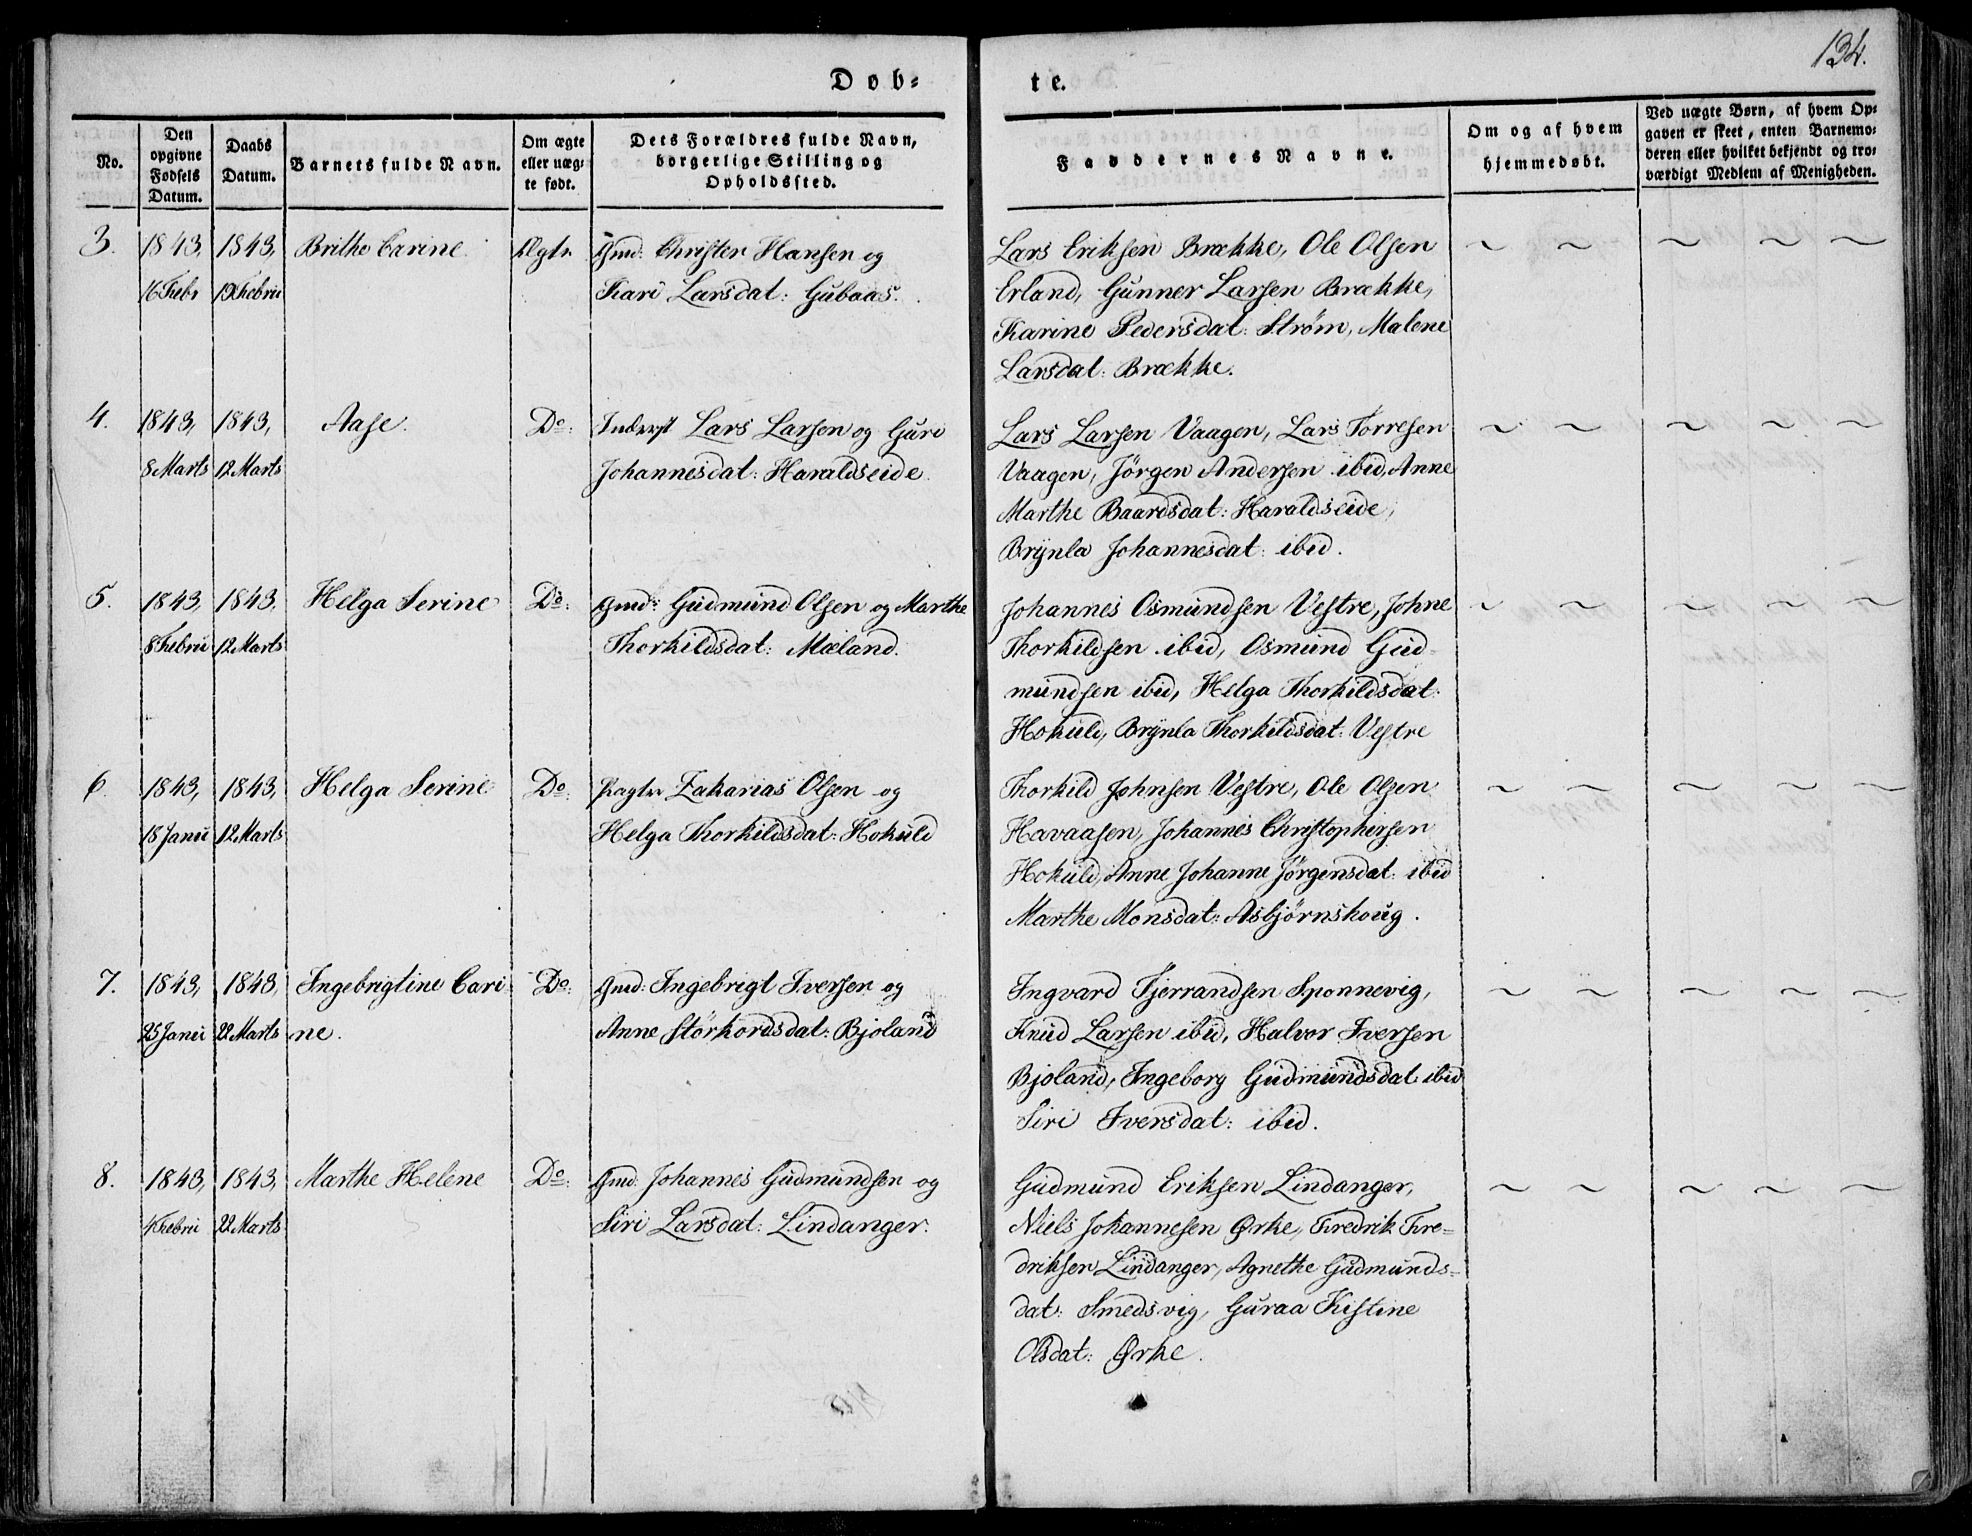 134.
Døb-
te.
No.
Den opgivne Fødsels Datum.
Daabs Datum.
Barnets fulde Navn.
Om ægte eller uæg-te født.
Dets Forældres fulde Navn, borgerlige Stilling og Opholdssted.
Faddernes Navne.
Om og af hvem hjemmedøbt.
Ved uægte Børn, af hvem Op-gaven er skeet, enten Barnemo-deren eller hvilket bekjendt og tro-værdigt Medlem af Menigheden.
3. 1843, 1843, Brithe Carine Ægte Gmd: Christer Hansen og
16 Febr 19 Februi Kari Larsdat: Gubaas.
Lars Eriksen Brække, Ole Olsen
Erland, Gunner Larsen Brække,
Karine Pedersdat: Strøm, Malene
Larsdat: Brække.
4. 1843, 1843, Aase. Do: Inderst Lars Larsen og Guri
8 Marts 12 Marts Johannesdat: Haraldseide.
Lars Larsen Vaagen, Lars Torresen
Vaagen, Jørgen Andersen ibid, Anne
Marthe Baardsdat: Haraldseide,
Brynla Johannesdat: ibid.
5. 1843, 1843. Helga Serine Do: Gmd: Gudmund Olsen og Marthe
8 Februi 12 Marts Thorkildsdat: Mæland.
Johannes Osmundsen Vestre, Johne
Thorkildsen ibid, Osmund Gud-
mundsen ibid, Helga Thorkildsdat:
Hokuld, Brynla Thorkildsdat: Vestre
6. 1843, 1843, Helga Serine Do: Pagter Zakarias Olsen og
18 Janui 12 Marts Helga Thorkildsdat: Hokuld
Thorkild Johnsen Vestre, Ole Olsen
Havaasen, Johannes Christophersen
Hokuld, Anne Johanne Jørgensdat: ibid
Marthe Monsdat: Asbjørnshoug.
7. 1843, 1843, Ingebrigtine Cari Do: Gmd: Ingebrigt Iversen og
25 Janui 22 Marts ne. Anne Størkordsdat: Bjoland
Ingvard Tjerrandsen Sponnevig,
Knud Larsen ibid, Halvor Iversen
Bjoland, Ingeborg Gudmundsdat ibid
Siri Iversdat: ibid.
8. 1843, 1843, Marthe Helene Do: Gmd: Johannes Gudmundsen og
4 Februi 22 Marts Siri Larsdat: Lindanger.
Gudmund Eriksen Lindanger,
Niels Johannesen Ørke, Fredrik Fre-
driksen Lindanger, Agnethe Gudmunds-
dat: Smedsvig, Guraa Kistine
Olsdat: Ørke.